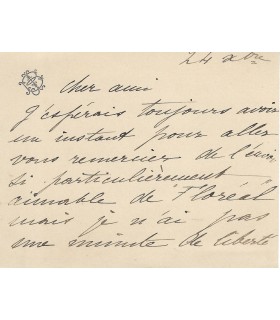 24 Xbre
Cher ami
J'espérais toujours avoir
un instant pour aller
vous remercier de l'envoi
si particulièrement
aimable de "Floréal"
mais je n'ai pas
une minute de liberté